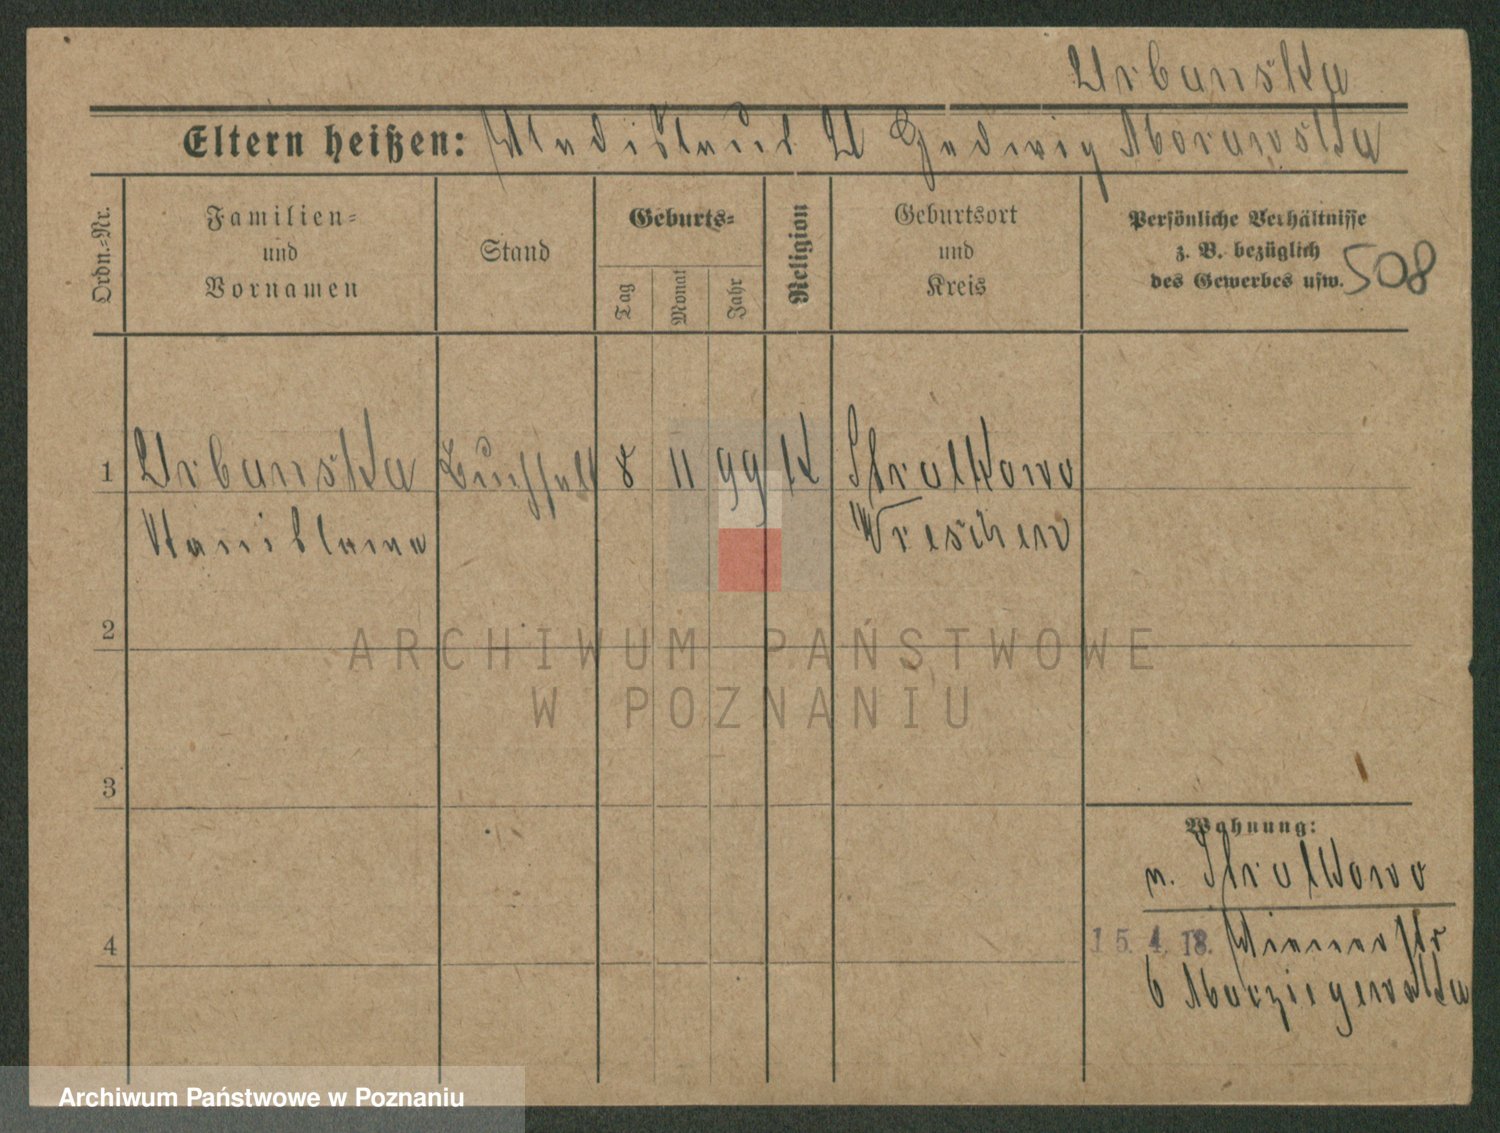 Urbanska
Eltern heißen: Wladislaus U Hedwig Morawska
Ordn.=Nr.
Familien=
und
Vornamen
Stand
Geburts=
Tag
Monat
Jahr
Religion
Geburtsort
und
Kreis
Persönliche Verhältnisse
z. B. bezüglich
des Gewerbes usw. 508
1 Urbanska Buchhalt 8 11 99 K Stralkowo
Stanislawa Wreschen
2
ARCHIWUM PAŃSTWOWE
W POZNANIU
3
Wohnung:
n. Stralkowo
4 15. 4. 18. Wienerstr
6
Archiwum Państwowe w Poznaniu